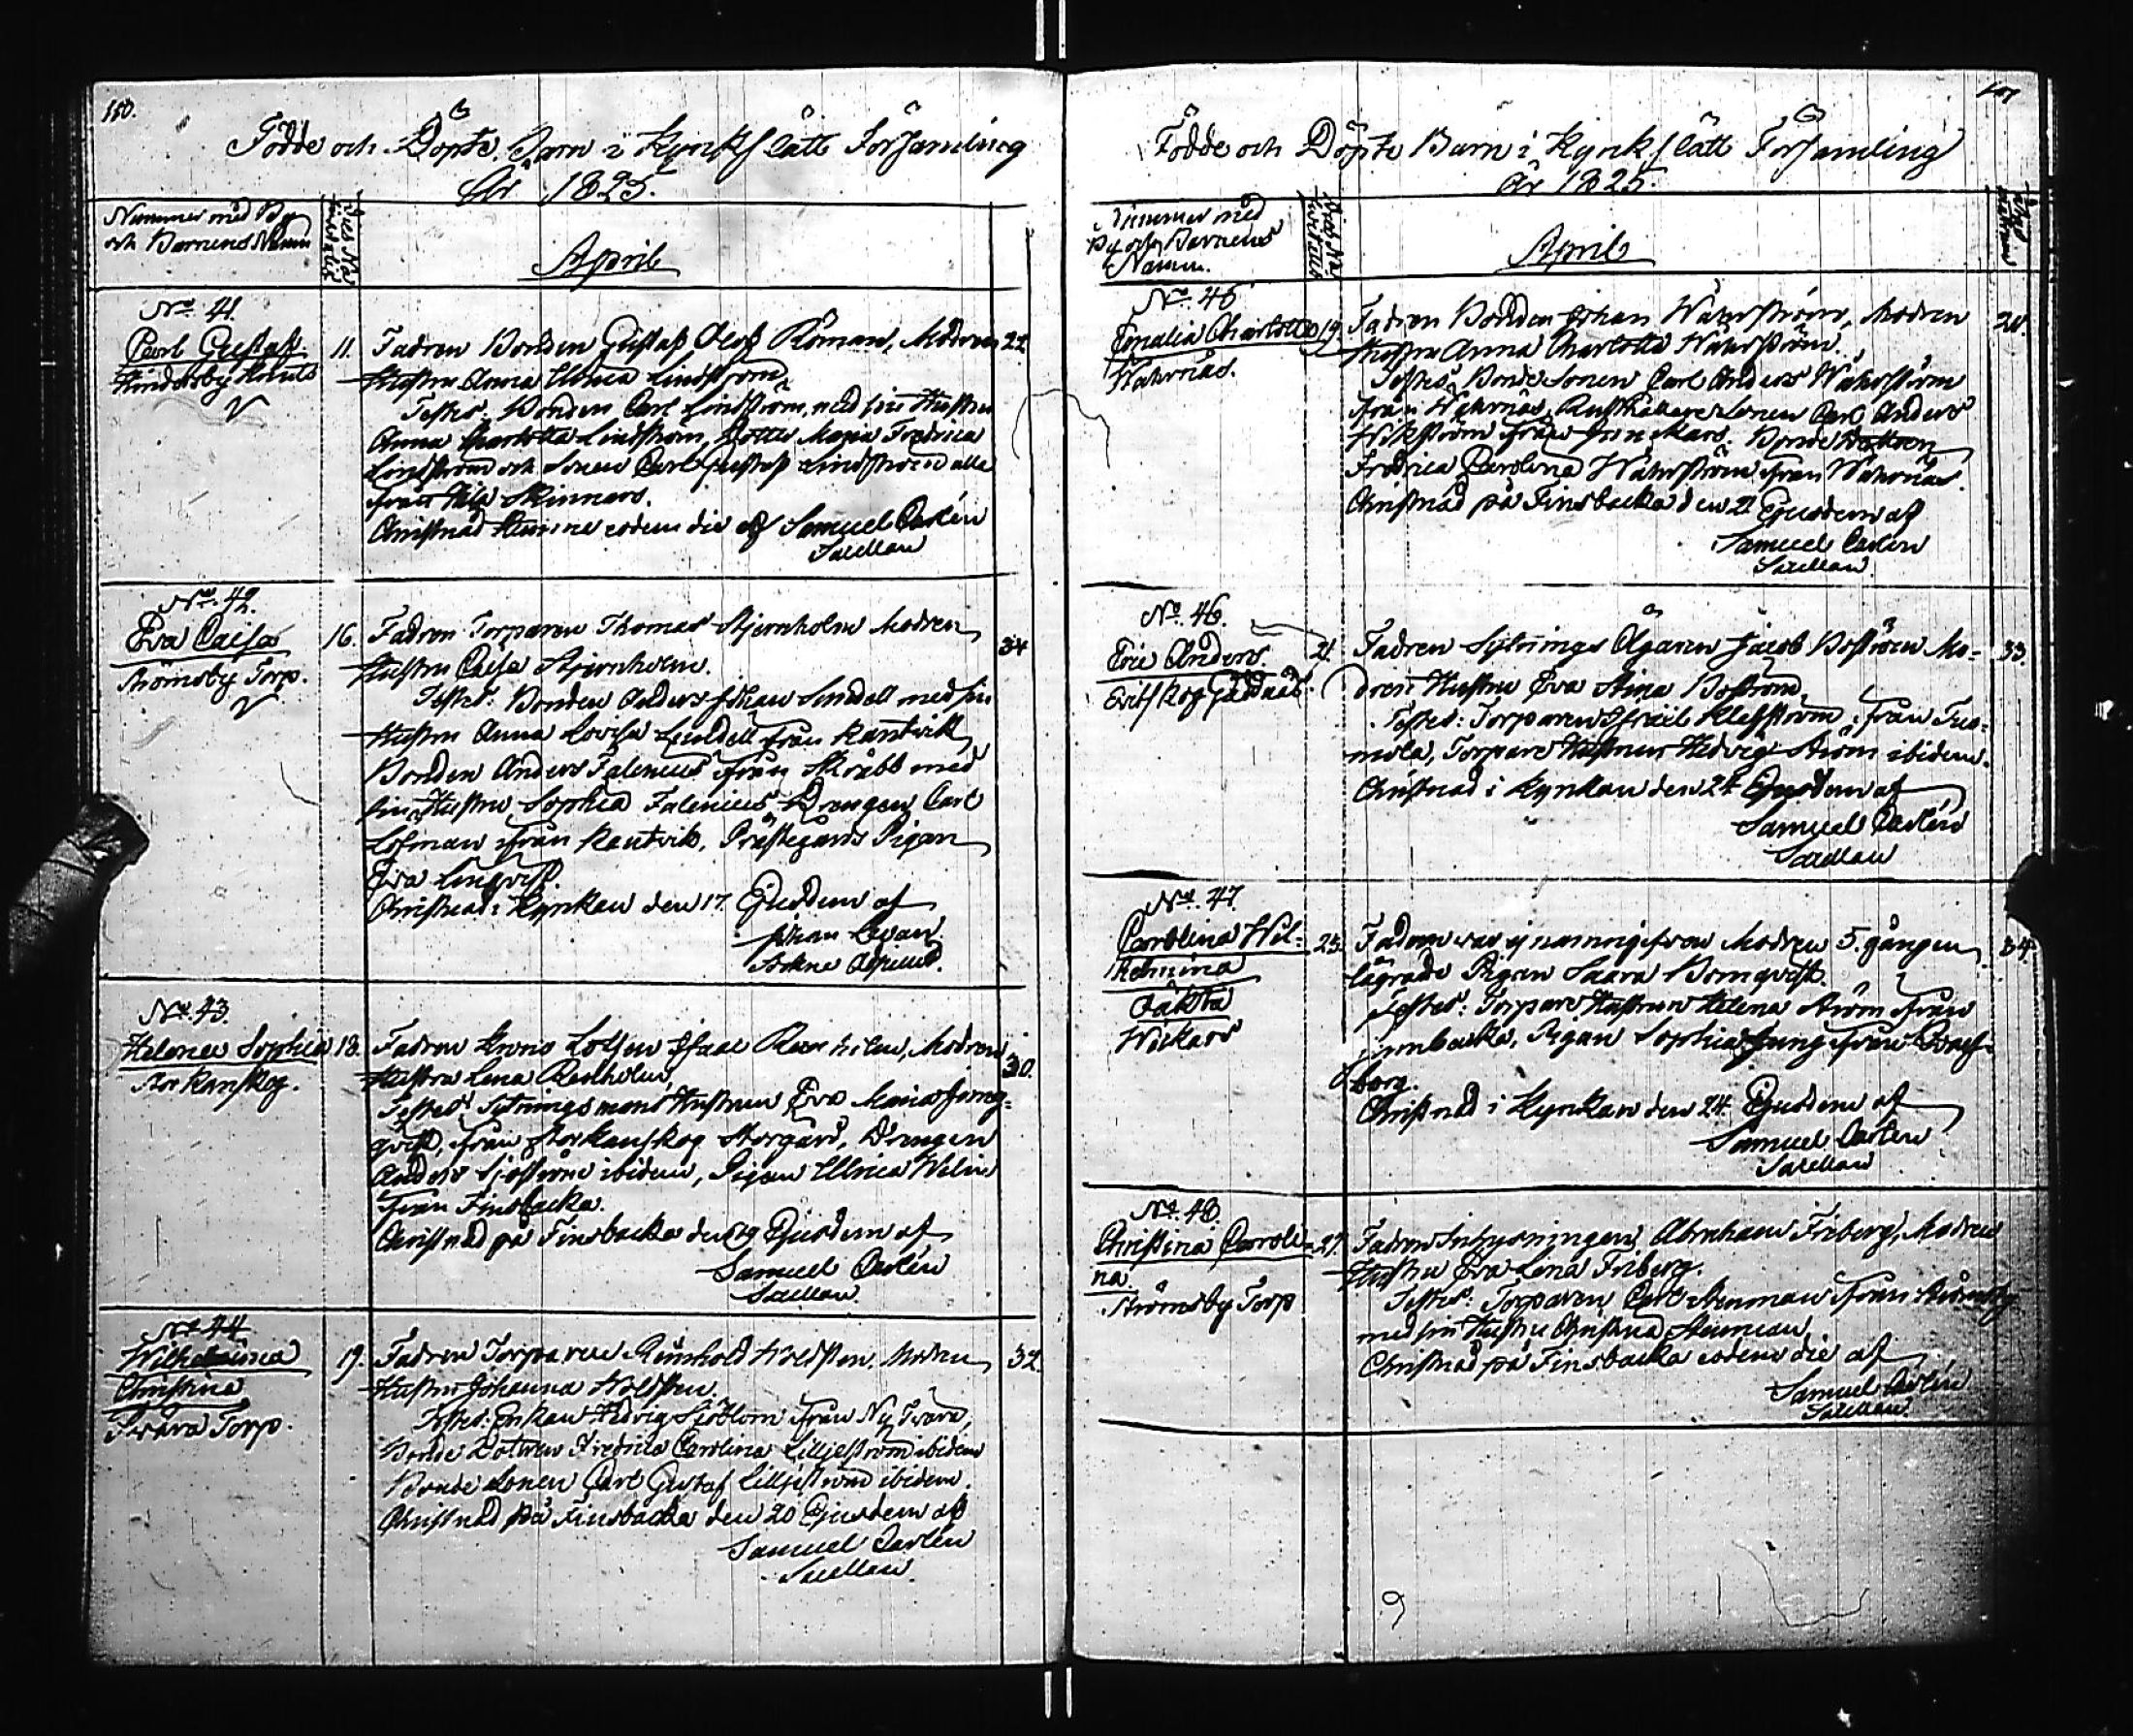 150.
Födde och Döpte Barn i Kyrkslätt Församling
År 1825.
Nummer med By
och Barnens Namn
April
No. 41.
Carl Gustaf
Hindersby Knuts
11. Fadren Bonden Gustaf Olof Roman, Modren 22
Hustru Anna Ulrica Lindström
Testes: Bonden Carl Lindström, med sin Hustru
Anna Charlotta Lindström, Dotter Maria Fredrica
Lindström och Sonen Carl Gustaf Lindström alla
från Skinnars.
Christnad Hemma eodem die af Samuel Carlén
Sacellan
No. 42.
Eva Caisa
Strömsby Torp.
16. Fadren Torparen Thomas Stjernholm Modren 34
Hustru Caisa Stjernholm.
Testes: Bonden Anders Johan Lindell med sin
Hustru Anna Lovisa Lindell från Kantvik
Bonden Anders Falenius från Skräbb med
sin Hustru Sophia Falenius Drengen Carl
Löfman från Kantvik, Prästegårds Pigan
Eva Linqvist.
Christnad i Kyrkan den 17 Ejusdem af
Johan Levan.
No. 43.
Helena Sophia
Storkanskog.
18. Fadren Krono Lotsen Isaac Renholm, Modren 30.
Hustru Lena Renholm,
Testes: Sytningsmans Hustrun Eva Maria Ljung-
qvist, från Storkanskog Storgård, Drengen
Anders Sjöström ibidem, Pigan Ulrica Welin
från Finsbacka.
Christnad på Finsbacka den 19 Ejusdem af
Samuel Carlén
Sacellan.
No. 44
Wilhelmina
Christina
Tvära Torp.
19. Fadren Torparen Reinhold Holdsten. Modren 32
Hustru Johanna Holdsten.
Testes: Enkan Hedvig Sjöblom från Ny Tvära,
Bonde Dottren Fredrica Carolina Lilljeström ibidem
Bonde Sonen Carl Gustaf Lilljeström ibidem.
Christnad på Finsbacka den 20 Ejusdem af
Samuel Carlén
Sacellan.
Födde och Döpte Barn i Kyrkslätt Församling
År 1825.
Nummer med
By och Barnens
Namn.
April
No. 45
Emalia Charlotta
Wahrnäs.
19. Fadren Bonden Johan Wahrström, Modren 20.
Hustru Anna Charlotta Wahrström.
Testes: Bonde Sonen Carl Anders Wahrström
från Wahrnäs, Rusthållare Sonen Carl Anders
Wikström från Mars. Bonde Dottren
Fredrica Carolina Wahrström från Wahrnäs.
Christnad på Finsbacka den 21 Ejusdem af
Samuel Carlén
Sacellan.
No. 46.
Eric Anders.
Evitskog Gäddnäs.
21. Fadren Sytnings Ägaren Jacob Boström Mo- 33.
dren Hustru Eva Stina Boström,
Testes: Torparen Israil Klefström, från
Torpare Hustrun Hedvig Ström ibidem.
Christnad i Kyrkan den 24 Ejusdem af
Samuel Carlén
Sacellan
No. 47.
Carolina Wil-
helmina
Oäkta
Wickars
23. Fadren var ej namngifven Modren 5. gången 34.
lägrade Pigan Saara Bomqvist.
Testes: Torpare Hustrun Helena Ström från
Pigan Sophia Ljung från
borg.
Christnad i Kyrkan den 24 Ejusdem af
Samuel Carlén
Sacellan
No. 48.
Christina Caroli-
na.
Strömsby Torp
27. Fadren Inhysningen Abraham Friberg, Modren
Hustru Eva Lena Friberg.
Testes: Torparen Carl Stenman från Strömsby
med sin Hustru Christina Stenman,
Christnad på Finsbacka eodem die af
Samuel Carlén
Sacellan.